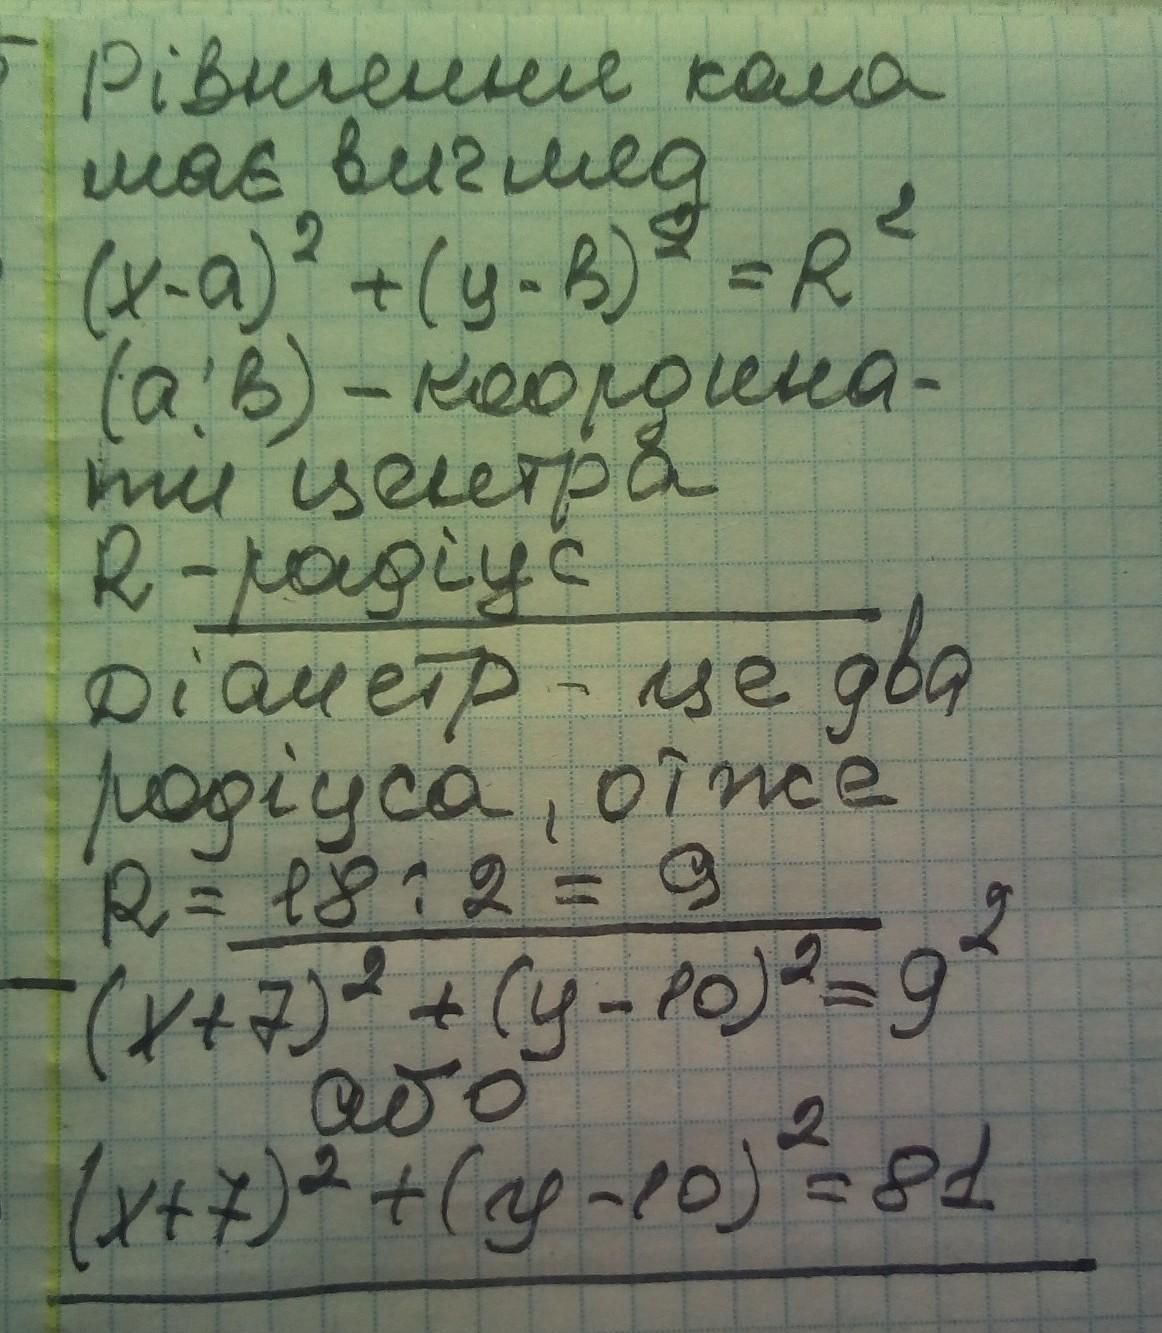 Рівняння кола
має вигляд
(x-a)² + (y-в)² = R²
(a;в) - координа-
ти центра
R - радіус
Діаметр - це два
радіуса, отже
R = 18 : 2 = 9
(x+7)² + (y-10)² = 9²
або
(x+7)² + (y-10)² = 81